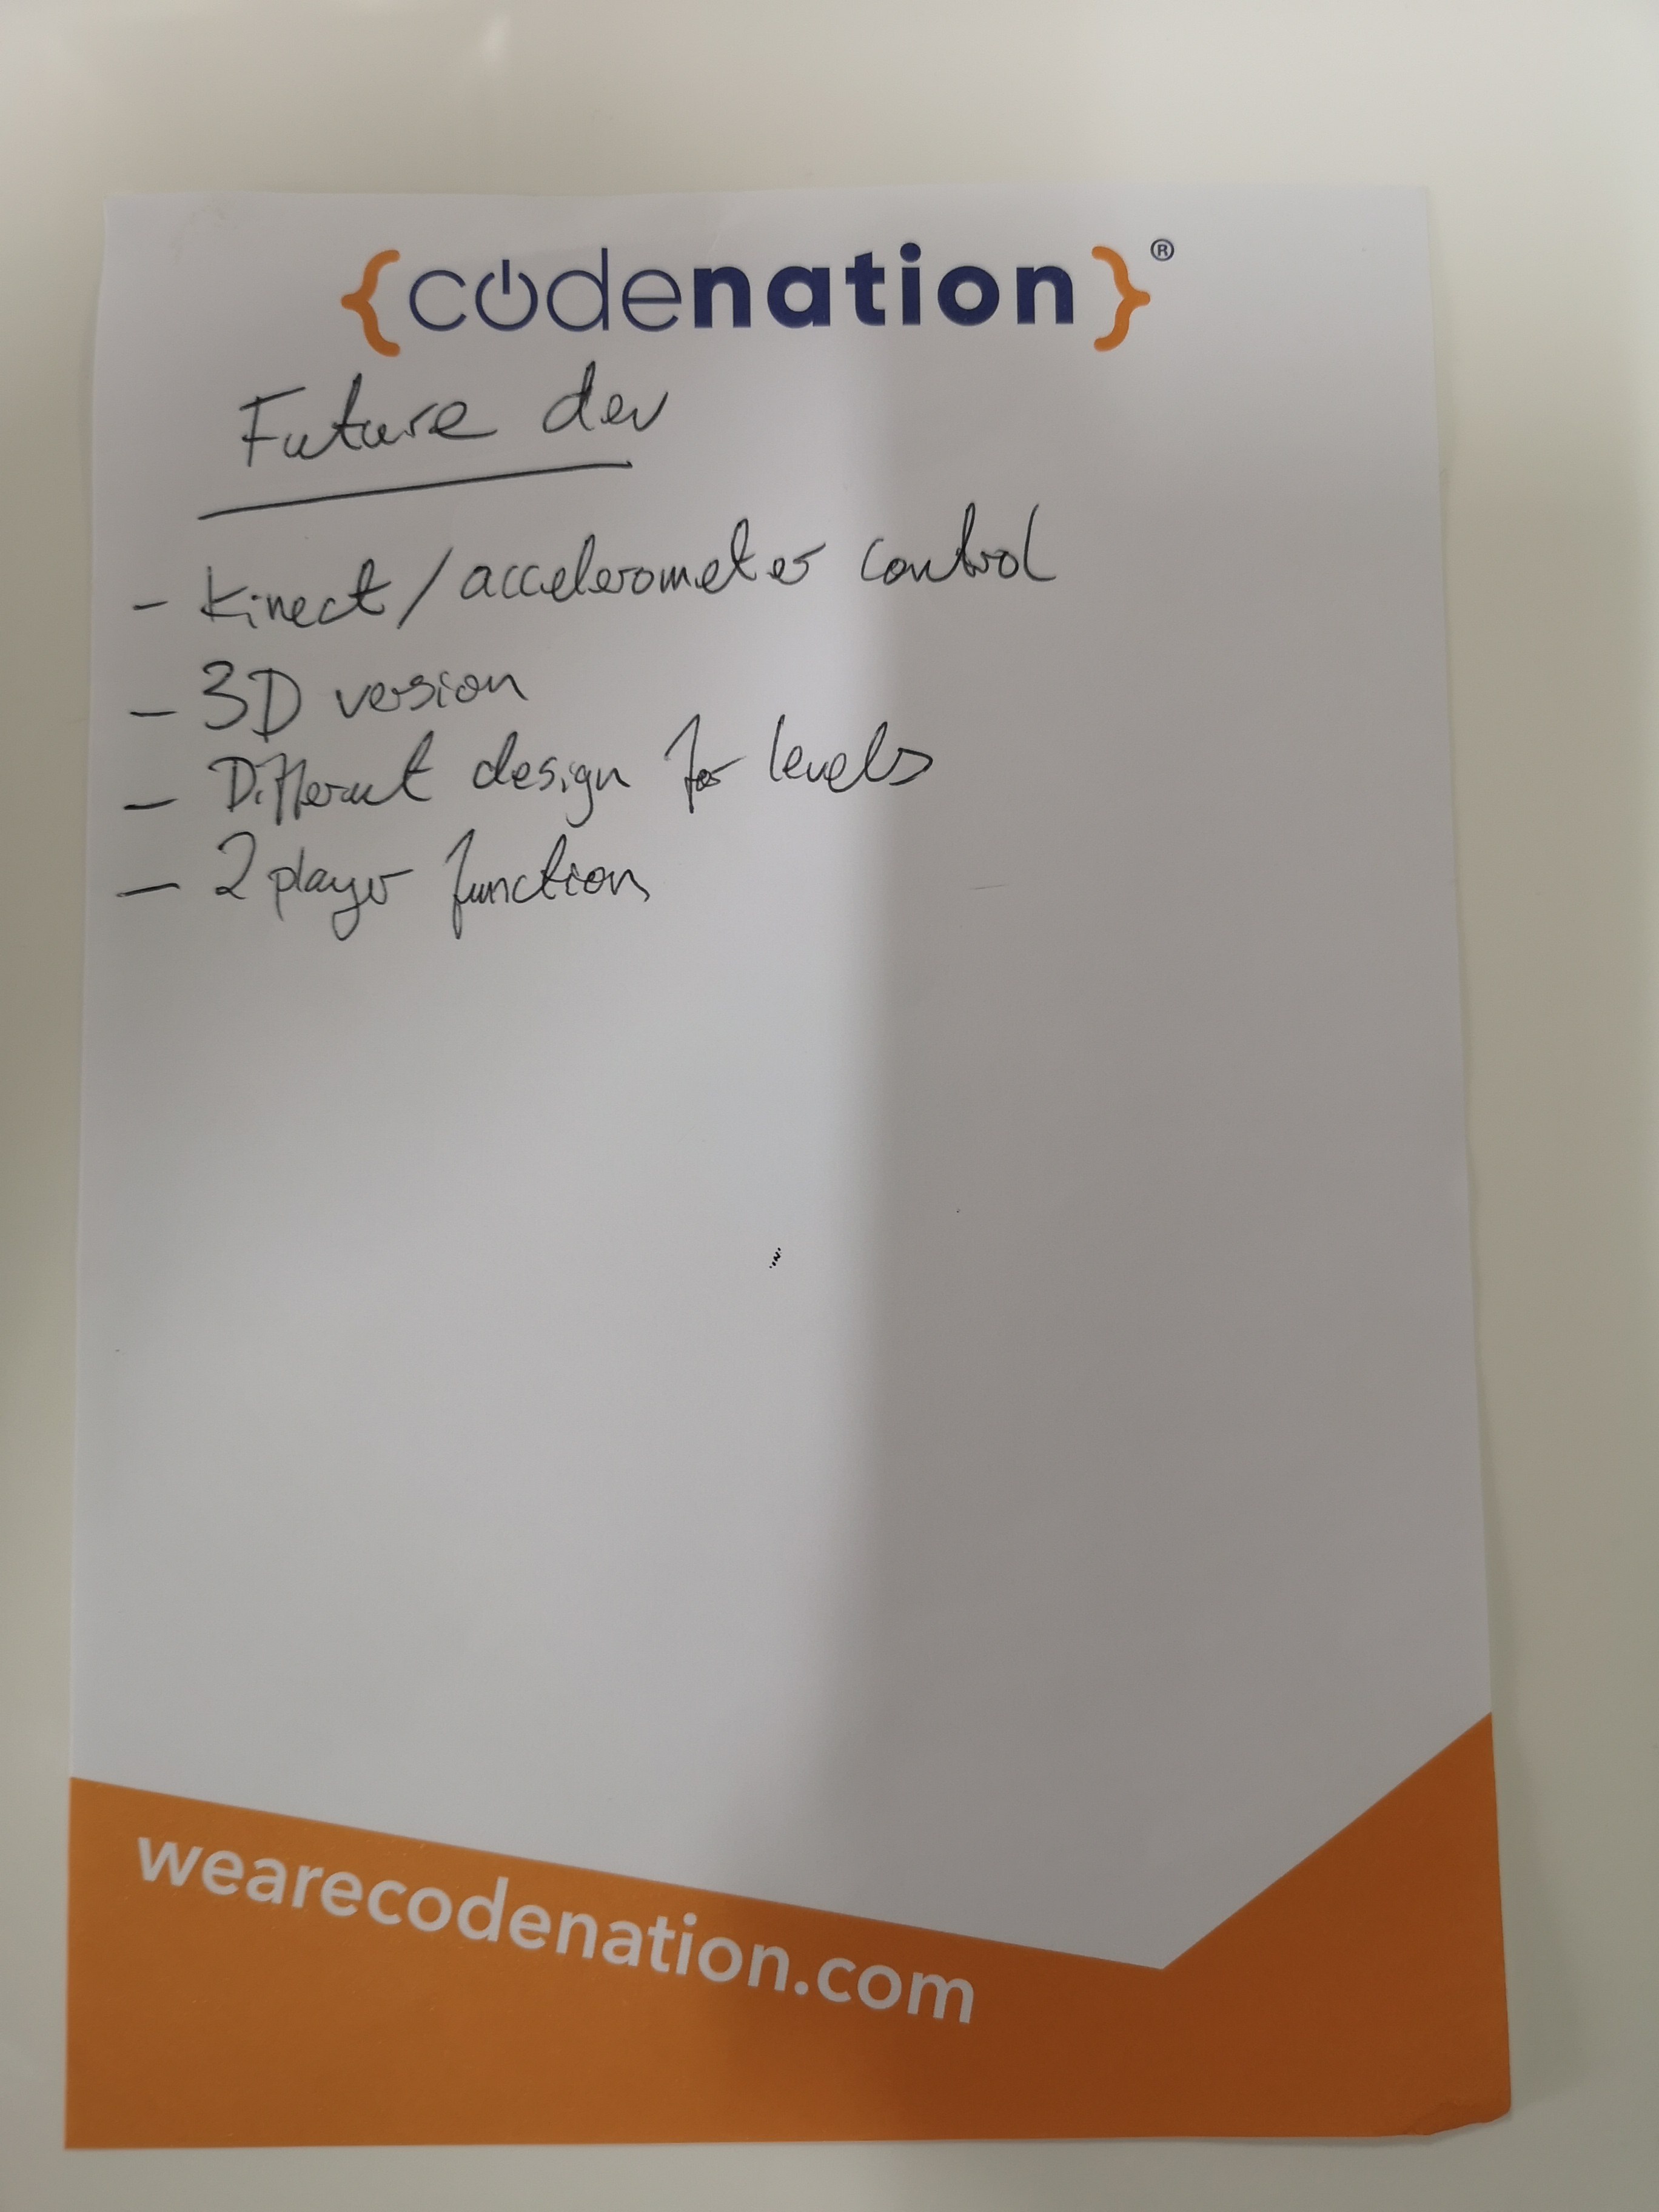 {codenation}®
Future dev
- Kinect/accelerometer control
- 3D version
- Different design for levels
- 2 player function
wearecodenation.com